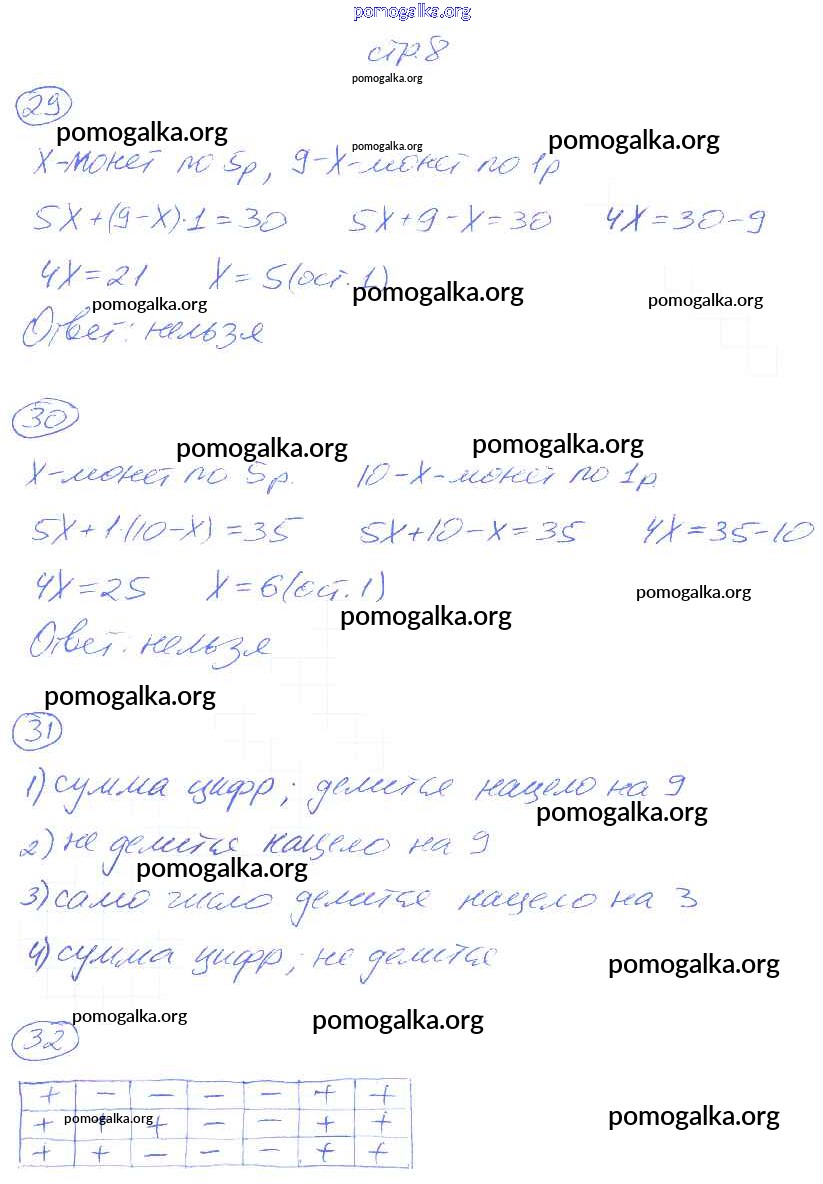 pomogalka.org
стр. 8
pomogalka.org
29
pomogalka.org pomogalka.org pomogalka.org
x-монет по 5р, 9-x-монет по 1р
5x+(9-x)·1=30 5x+9-x=30 4x=30-9
4x=21 x=5(ост.1)
pomogalka.org pomogalka.org pomogalka.org
Ответ: нельзя
30
pomogalka.org pomogalka.org
x-монет по 5р. 10-x-монет по 1р
5x+1·(10-x)=35 5x+10-x=35 4x=35-10
4x=25 x=6(ост.1)
pomogalka.org pomogalka.org
Ответ: нельзя
pomogalka.org
31
1) сумма цифр; делится нацело на 9
pomogalka.org
2) не делится нацело на 9
pomogalka.org
3) само число делится нацело на 3
4) сумма цифр; не делится
pomogalka.org
pomogalka.org pomogalka.org
32
+ - - - - + +
+ + + - - + +
pomogalka.org pomogalka.org
+ + - - - + +